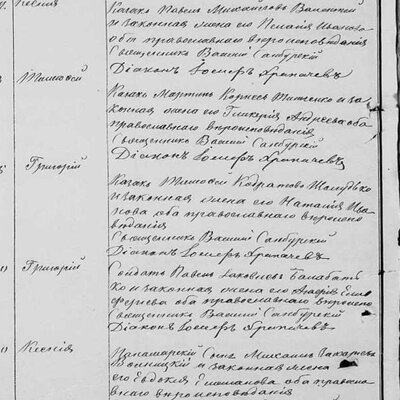 Ксенія
Казакъ Павелъ Михайловъ
и законная жена его Пелагія Иванова
оба православнаго вѣроисповѣданія
Священникъ Василій Самбурскій
Діаконъ Іосифъ
Тимофей
Казакъ Мартинъ Корнеевъ Тищенко и за-
конная жена его Гликерія Андреева оба
православнаго вѣроисповѣданія
Священникъ Василій Самбурскій
Діаконъ Іосифъ
Григорій
Казакъ Тимофей Кодратовъ
и законная жена его Наталія Ива-
нова оба православнаго вѣроиспо-
вѣданія
Священникъ Василій Самбурскій
Діаконъ Іосифъ
Григорій
Солдатъ Павелъ Яковлевъ Балабать-
ко и законная жена его
оба православнаго вѣроиспо
Священникъ Василій Самбурскій
Діаконъ Іосифъ
Ксенія
Сынъ Михаилъ Захарьевъ
и законная жена
его Евдокія оба правосла-
внаго вѣроисповѣданія